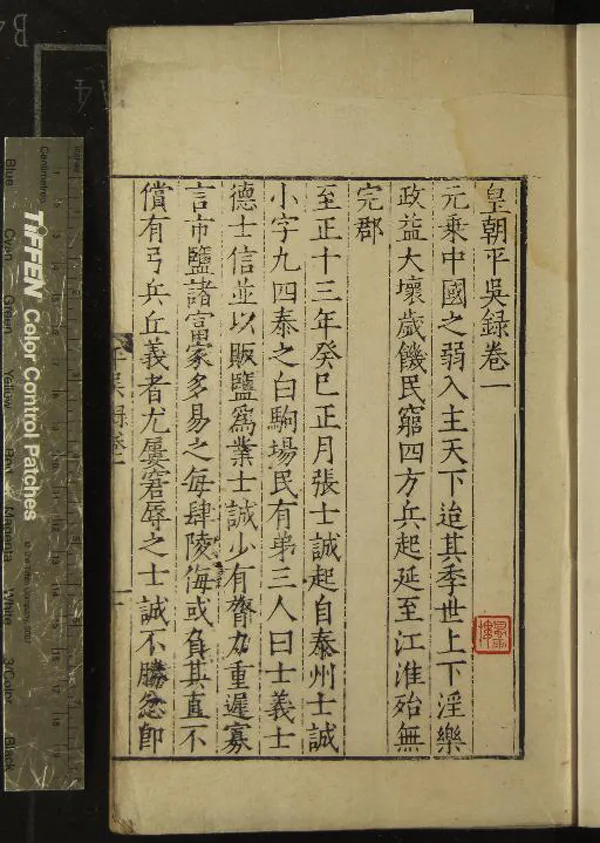 皇朝平吳錄卷一
元乗中國之弱入主天下迨其季世上下淫樂
政益大壞歲饑民窮四方兵起延至江淮殆無
完郡
至正十三年癸巳正月張士誠起自泰州士誠
小字九四泰之白駒場民有弟三人曰士義士
德士信並以販鹽爲業士誠少有膂力重遲寡
言市鹽諸富家多易之每肆陵侮或負其直不
償有弓兵丘義者尤屢窘辱之士誠不勝忿卽
吳錄卷一
TIFFEN Color Control Patches
Centimetres
Blue
Cyan
Green
Yellow
Red
Magenta
White
3/Color
Black